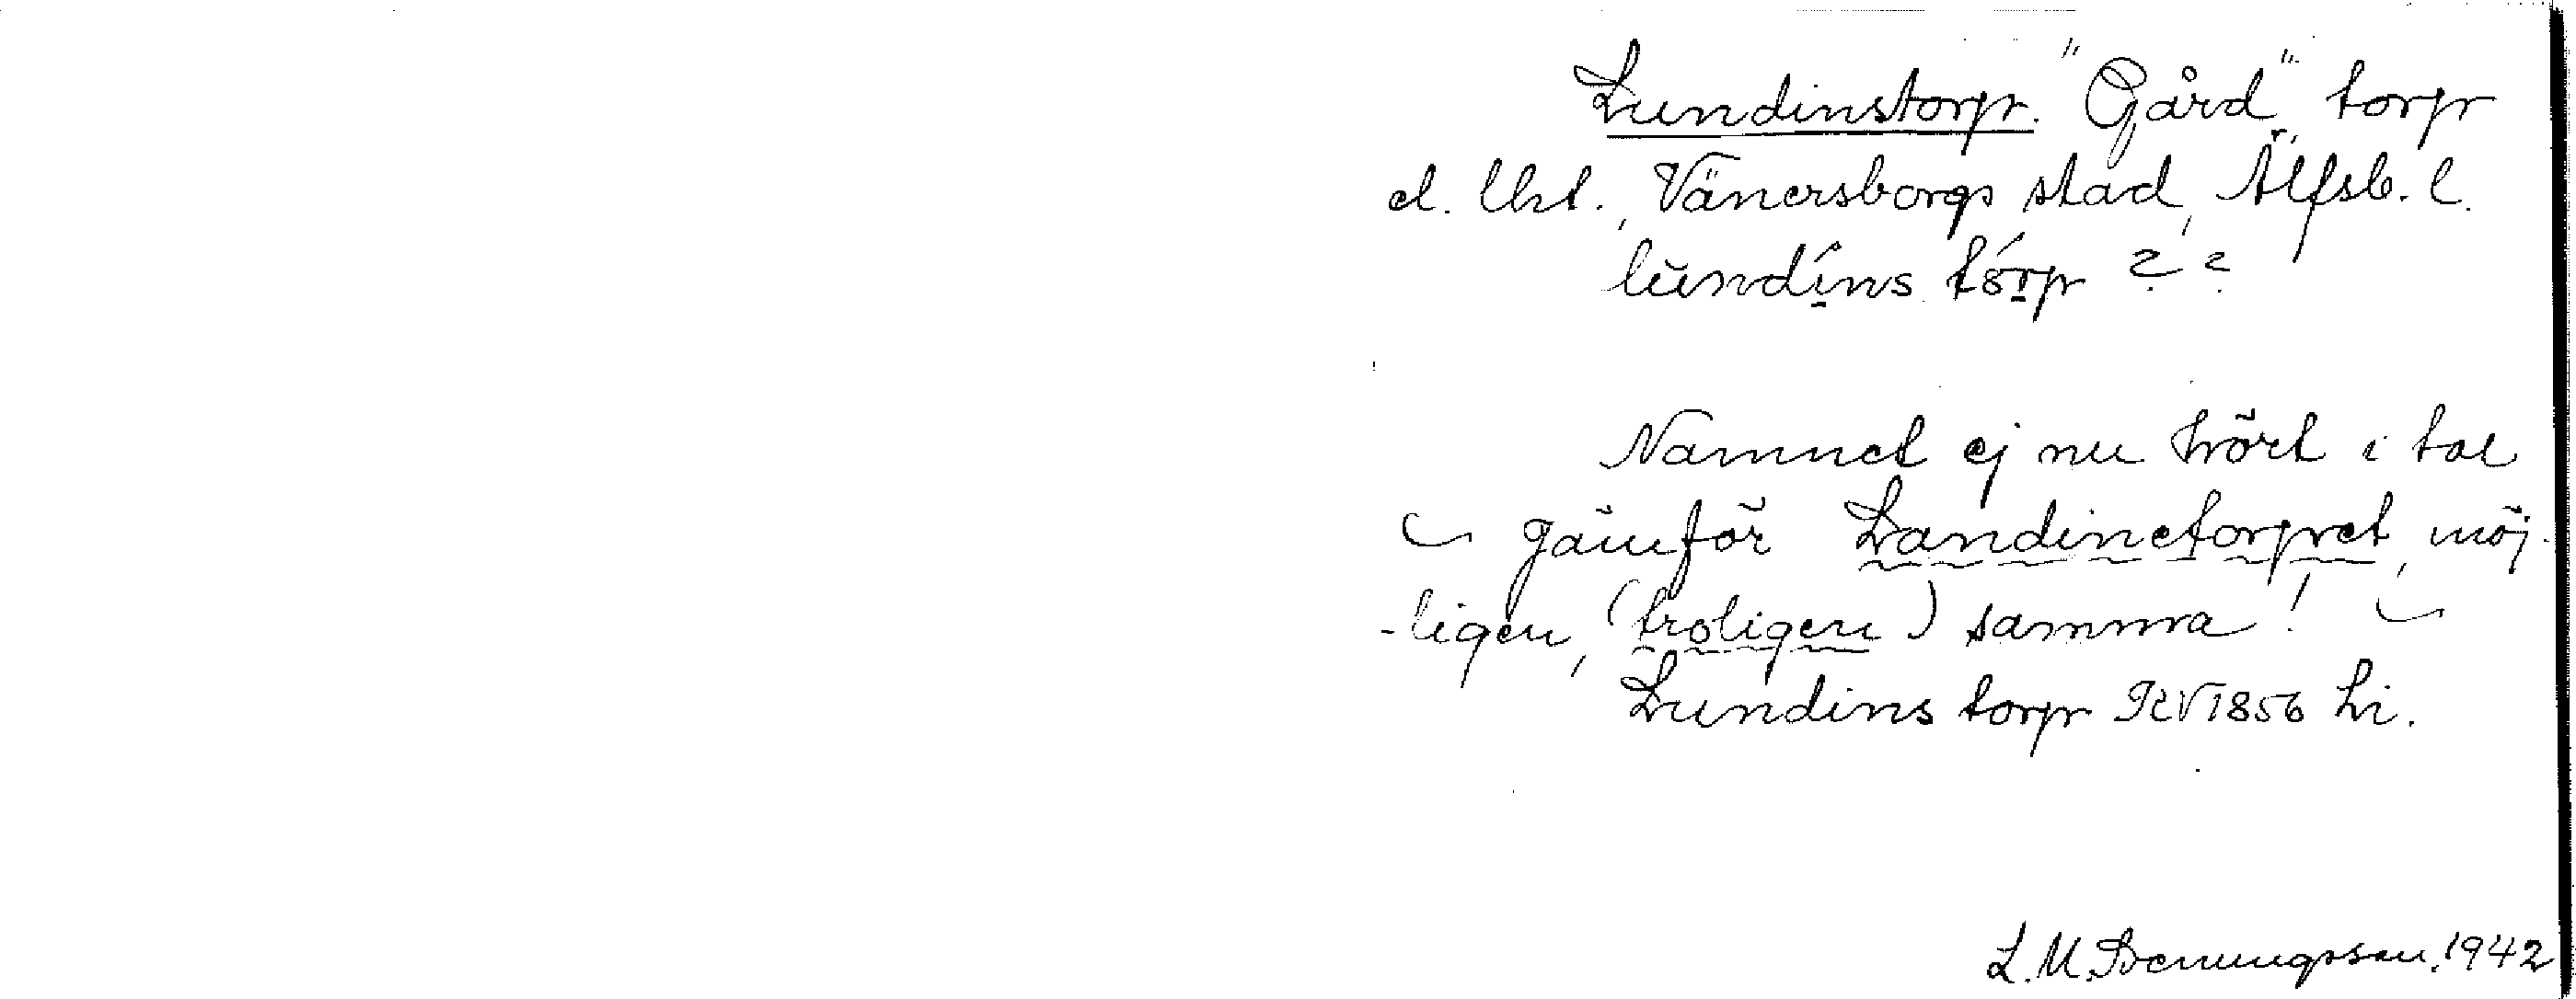 Lundinstorp. "Gård" torp
el. lht., Vänersborgs stad, Älfsb. l.
lŭndíns tórp ? ?
Namnet ej nu hört i tal
Jämför Landinetorpet, möj-
-ligen, (troligen) samma!
Lundins torp RV 1856 Li.
L. M. Svenungsson. 1942